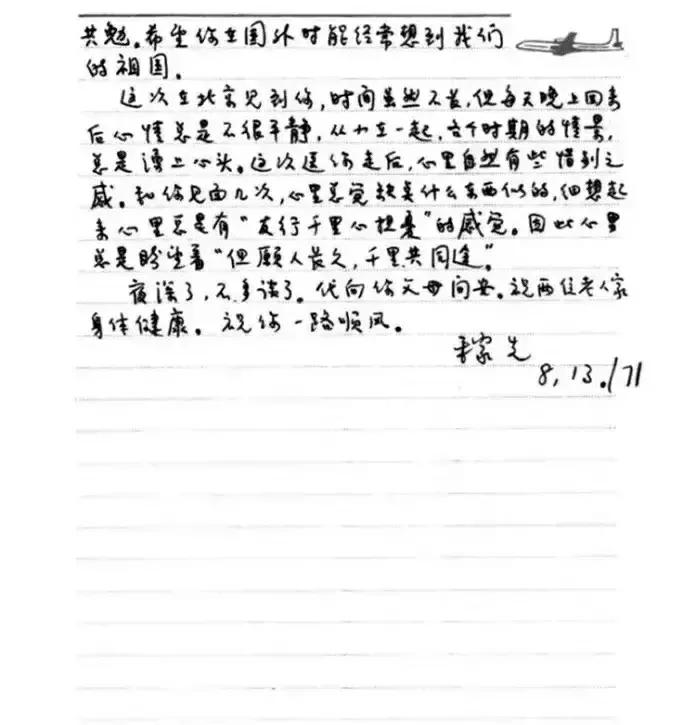 共勉。希望你在国外时能经常想到我们
的祖国。
这次在北京见到你，时间虽然不长，但每天晚上回来
后心情总是不很平静，从小在一起，各个时期的情景，
总是涌上心头。这次送你走后，心里自然有些惜别之
感。和你见面几次，心里总觉缺点什么东西似的，细想起
来心里总是有“友行千里心担忧”的感觉。因此心里
总是盼望着“但愿人长久，千里共同途”。
夜深了，不多谈了。代向你父母问安。祝两位老人家
身体健康。祝你一路顺风。
稼先
8,13./71